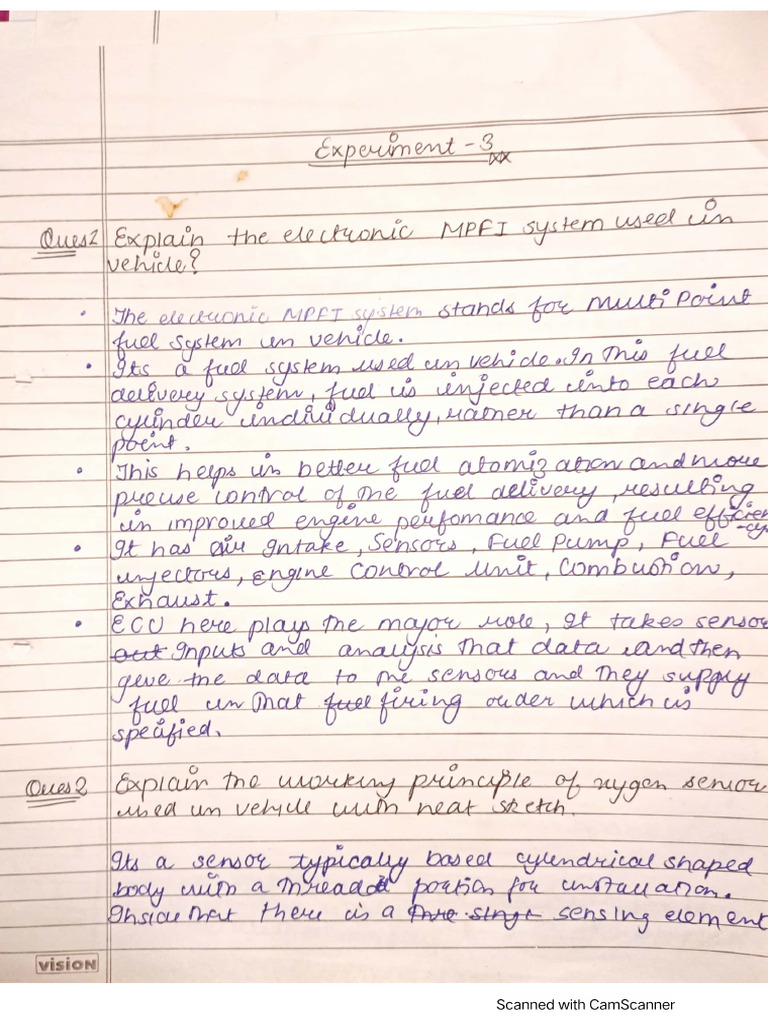 Experiment - 3
Ques1 Explain the electronic MPFI system used in
vehicle?
• The electronic MPFI system stands for Multi Point
fuel system in vehicle.
• Its a fuel system used in vehicle. In this fuel
delivery system, fuel is injected into each
cylinder individually, rather than a single
point.
• This helps in better fuel atomization and more
precise control of the fuel delivery, resulting
in improved engine perfomance and fuel efficien
-cy
• It has air Intake, Sensors, Fuel Pump, Fuel
injectors, Engine Control Unit, Combustion,
Exhaust.
• ECU here plays the major role, It takes sensor
out Inputs and analysis that data and then
geve the data to the sensors and they supply
fuel in that fuel firing order which is
specified.
Ques2 Explain the working principle of oxygen sensor
used in vehicle with neat sketch.
Its a sensor typically based cylendrical shaped
body with a threaded portion for installation.
Inside that there is a sensing element
VISION
Scanned with CamScanner